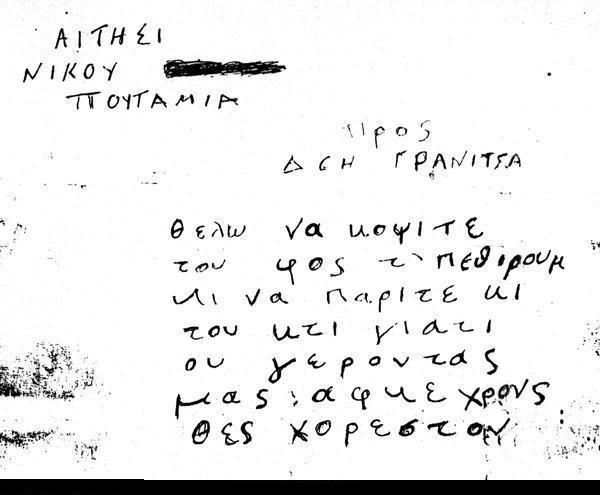 ΑΙΤΗΣΙ
ΝΙΚΟΥ
ΠΟΥΤΑΜΙΑ
Προς
ΔΕΗ ΓΡΑΝΙΤΣΑ
θελω να κοψιτε
του φος τ' πεθιρουμ
κι να παριτε κι
του κτι γιατι
ου γεροντας
μας αφκε χρονς
θες χορεστον